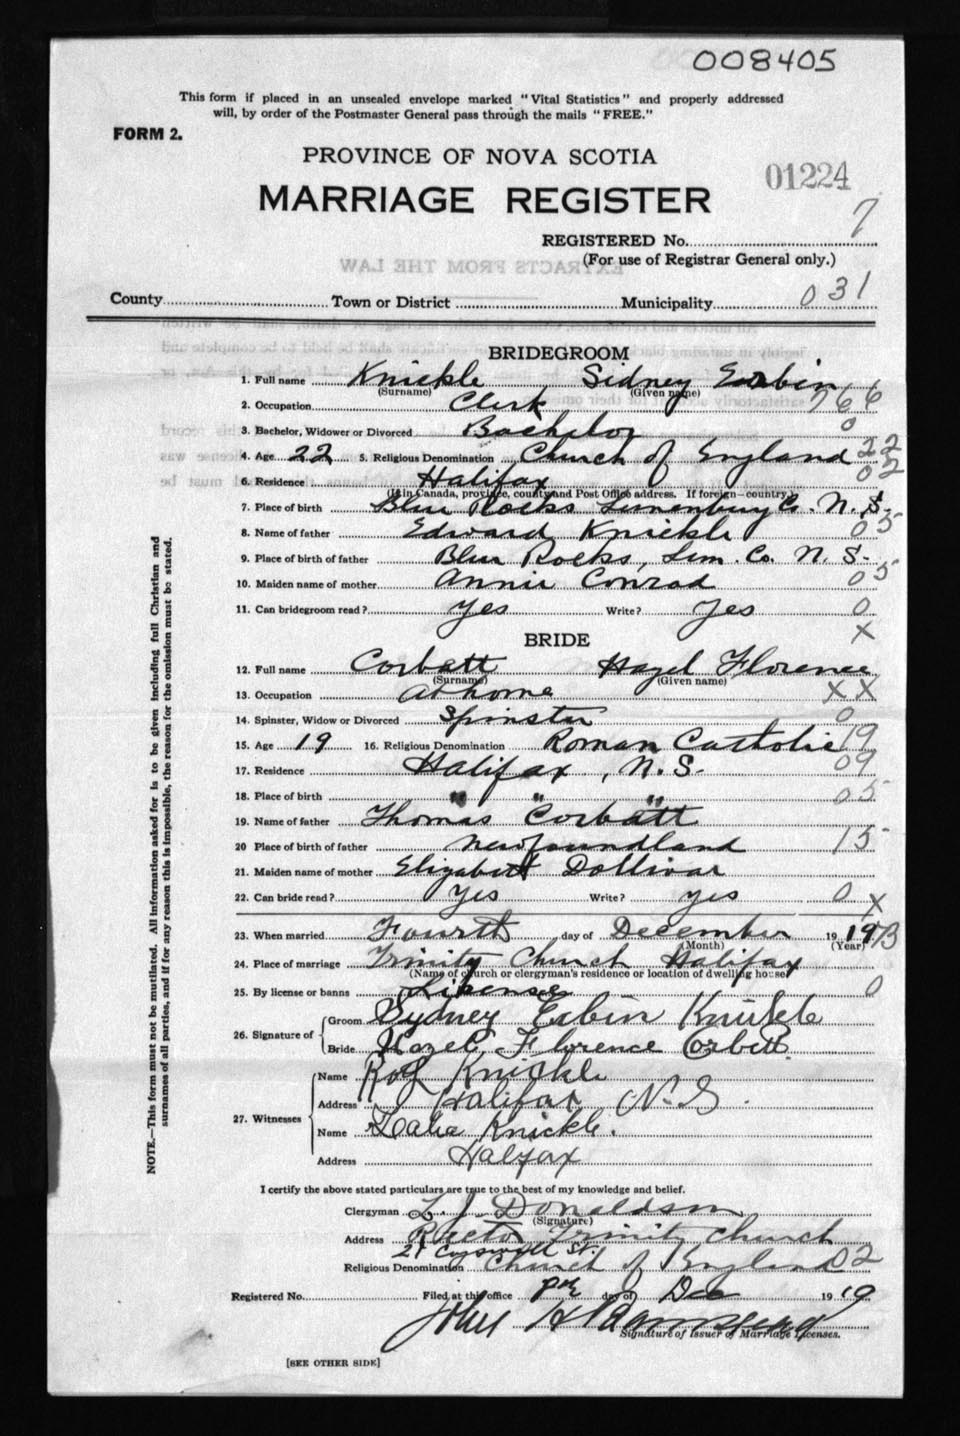 008405
This form if placed in an unsealed envelope marked "Vital Statistics" and properly addressed
will, by order of the Postmaster General pass through the mails "FREE."
FORM 2.
PROVINCE OF NOVA SCOTIA
01224
MARRIAGE REGISTER
7
REGISTERED No.
(For use of Registrar General only.)
County Town or District Municipality 031
BRIDEGROOM
1. Full name Knickle Sidney Erbin
(Surname) (Given name)
2. Occupation Clerk 766
3. Bachelor, Widower or Divorced Bachelor 0
4. Age 22 5. Religious Denomination Church of England 22
6. Residence Halifax 02
(If in Canada, province, county and Post Office address. If foreign—country.)
7. Place of birth Blue Rocks Lunenburg Co. N. S.
8. Name of father Edward Knickle 05
9. Place of birth of father Blue Rocks, Lun. Co. N. S.
10. Maiden name of mother Annie Conrad 05
11. Can bridegroom read? Yes Write? Yes 0
BRIDE
X
12. Full name Corbatt Hazel Florence
(Surname) (Given name)
13. Occupation At home XX
14. Spinster, Widow or Divorced Spinster 0
15. Age 19 16. Religious Denomination Roman Catholic 19
17. Residence Halifax, N. S. 09
18. Place of birth " " " 05
19. Name of father Thomas Corbatt
20 Place of birth of father Newfoundland 15
21. Maiden name of mother Elizabeth Dollivar
22. Can bride read? Yes Write? yes 0 X
23. When married Fourth day of December 19 19
(Month) (Year)
24. Place of marriage Trinity Church Halifax
(Name of church or clergyman's residence or location of dwelling house)
25. By license or banns License 0
26. Signature of Groom Sydney Erbin Knickle
Bride Hazel Florence Corbett
27. Witnesses Name Roy Knickle
Address Halifax N. S.
Name Knickle.
Address Halifax
I certify the above stated particulars are true to the best of my knowledge and belief.
Clergyman L. J. Donaldson
(Signature)
Address Rector Trinity Church
21 Cogswell St.
Religious Denomination Church of England 02
Registered No. Filed at this office day of Dec 19 19
John
Signature of Issuer of Marriage Licenses.
[SEE OTHER SIDE]
NOTE.—This form must not be mutilated. All information asked for is to be given including full Christian and
surnames of all parties, and if for any reason this is impossible, the reason for the omission must be stated.